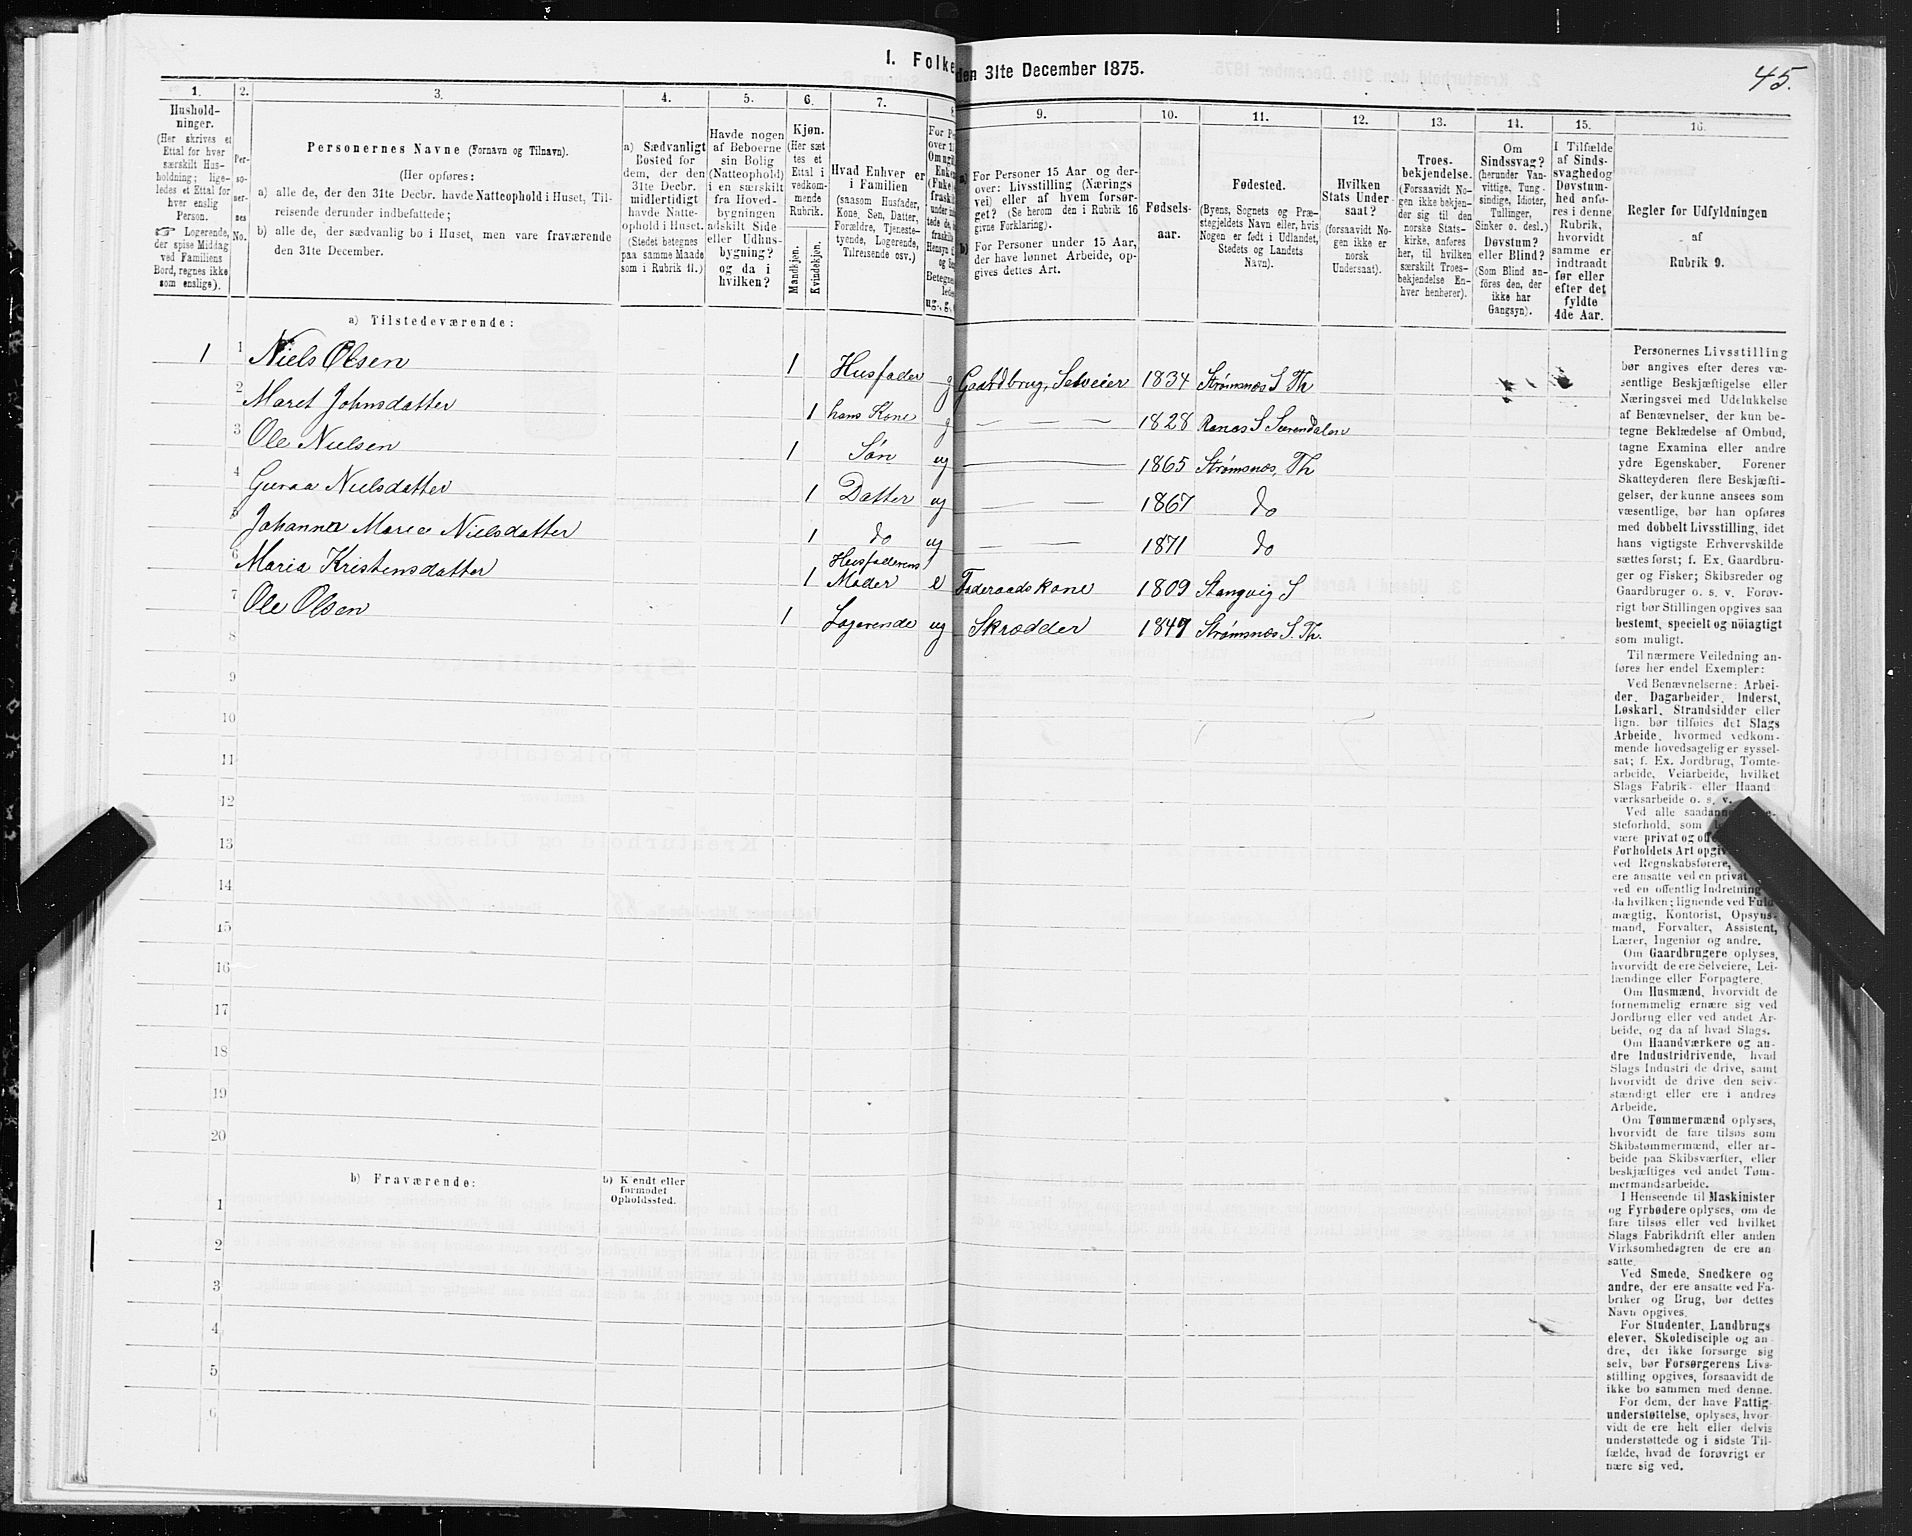 45.
I. Folke den 31te December 1875.
1. 2. 3. 4. 5. 6. 7. 8 9. 10. 11. 12. 13. 14. 15. 16.
Hushold-
ninger.
(Her skrives et
Ettal for hver
særskilt Hus-
holdning; lige-
ledes et Ettal for
hver enslig
Person.
☞ Logerende,
der spise Middag
ved Familiens
Bord, regnes ikke
som enslige).
Per-
so-
ner-
nes
No.
Personernes Navne (Fornavn og Tilnavn).
(Her opføres:
a) alle de, der den 31te Decbr. havde Natteophold i Huset, Til-
reisende derunder indbefattede;
b) alle de, der sædvanlig bo i Huset, men vare fraværende
den 31te December.
a) Sædvanligt
Bosted for
dem, der den
31te Decbr.
midlertidigt
havde Natte-
ophold i Huset.
(Stedet betegnes
paa samme Maade
som i Rubrik 11.)
Havde nogen
af Beboerne
sin Bolig
(Natteophold)
i en særskilt
fra Hoved-
bygningen
adskilt Side-
eller Udhus-
bygning?
og da i
hvilken?
Kjøn.
(Her sæt-
tes et
Ettal i
vedkom-
mende
Rubrik.
Mandkjøn.
Kvindekjøn.
Hvad Enhver er
i Familien
(saasom Husfader,
Kone, Søn, Datter,
Forældre, Tjeneste-
tyende, Logerende,
Tilreisende osv.)
For P
over 1
Om ug
Enke
(Enke
fraskil
under in
tede de,
fraskilte
Hensyn
og S
Betegne
lede
ug., g.,
a) For Personer 15 Aar og der-
over: Livsstilling (Nærings
vei) eller af hvem forsør-
get? (Se herom den i Rubrik 16
givne Forklaring).
b) For Personer under 15 Aar,
der have lønnet Arbeide, op-
gives dettes Art.
Fødsels-
aar.
Fødested.
(Byens, Sognets og Præ-
stegjeldets Navn eller, hvis
Nogen er født i Udlandet,
Stedets og Landets
Navn).
Hvilken
Stats Under-
saat?
(forsaavidt No-
gen ikke er
norsk
Undersaat).
Troes-
bekjendelse.
(Forsaavidt No-
gen ikke bekjen-
der sig til den
norske Stats-
kirke, anføres
her, til hvilken
særskilt Troes-
bekjendelse En-
hver henhører).
Om
Sindssvag?
(herunder Van-
vittige, Tung-
sindige, Idioter,
Tullinger,
Sinker o. desl.)
Døvstum?
eller Blind?
(Som Blind an-
føres den, der
ikke har
Gangsyn).
I Tilfælde
af Sinds-
svaghed og
Døvstum-
hed anfø-
res i denne
Rubrik,
hvorvidt
samme er
indtraadt
før eller
efter det
fyldte
4de Aar.
Regler for Udfyldningen
af
Rubrik 9.
a) Tilstedeværende:
1 1 Niels Olsen 1 Husfader g Gaardbrug, Selveier 1834 Strømsnæs S Th
2 Maret Johnsdatter 1 hans Kone g — — — 1828 Ranæs S Surendalen
3 Ole Nielsen 1 Søn ug — — 1865 Strømsnæs, Th
4 Guraa Nielsdatter 1 Datter ug — — 1867 do
5 Johanna Maria Nielsdatter 1 do ug — — 1871 do
6 Maria Kristensdatter 1 Husfaderens Moder e Føderaadskone 1809 Stangvig S
7 Ole Olsen 1 Logerende ug Skrædder 1847 Strømsnæs S. Th.
8
9
10
11
12
13
14
15
16
17
18
19
20
b) Fraværende:
b) Kjendt eller
formodet
Opholdssted.
1
2
3
4
5
6
Personernes Livsstilling
bør angives efter deres væ-
sentlige Beskjæftigelse eller
Næringsvei med Udelukkelse
af Benævnelser, der kun be-
tegne Beklædelse af Ombud,
tagne Examina eller andre
ydre Egenskaber. Forener
Skatteyderen flere Beskjæfti-
gelser, der kunne ansees som
væsentlige, bør han opføres
med dobbelt Livsstilling, idet
hans vigtigste Erhvervskilde
sættes først; f. Ex. Gaardbru-
ger og Fisker; Skibsreder og
Gaardbruger o. s. v. Forøv-
rigt bør Stillingen opgives saa
bestemt, specielt og nöiagtigt
som muligt.
Til nærmere Veiledning an-
føres her endel Exempler:
Ved Benævnelserne: Arbei-
der, Dagarbeider, Inderst,
Løskarl, Strandsidder eller
lign. bør tilføies det Slags
Arbeide, hvormed vedkom-
mende hovedsagelig er syssel-
sat; f. Ex. Jordbrug, Tomte-
arbeide, Veiarbeide, hvilket
Slags Fabrik- eller Haand
værksarbeide o. s. v.
Ved alle saadanne
steforhold, som
være privat og off
Forholdets Art opgiv
ved Regnskabsførere,
ere ansatte ved en privat
ved en offentlig Indretning
da hvilken; lignende ved Fuld
mægtig, Kontorist, Opsyns-
mand, Forvalter, Assistent,
Lærer, Ingeniør og andre.
Om Gaardbrugere oplyses,
hvorvidt de ere Selveiere, Lei-
lændinge eller Forpagtere.
Om Husmænd, hvorvidt de
fornemmelig ernære sig ved
Jordbrug eller ved andet Ar-
beide, og da af hvad Slags.
Om Haandværkere og an-
dre Industridrivende, hvad
Slags Industri de drive, samt
hvorvidt de drive den selv-
stændigt eller ere i andres
Arbeide.
Om Tømmermænd oplyses,
hvorvidt de fare tilsøs som
Skibstømmermænd, eller ar-
beide paa Skibsværfter, eller
beskjæftiges ved andet Tøm-
mermandsarbeide.
I Henseende til Maskinister
og Fyrbødere oplyses, om de
fare tilsøs eller ved hvilket
Slags Fabrikdrift eller anden
Virksomhedsgren de ere an-
satte.
Ved Smede, Snedkere og
andre, der ere ansatte ved Fa-
briker og Brug, bør dettes
Navn opgives.
For Studenter, Landbrugs-
elever, Skoledisciple og an-
dre, der ikke forsørge sig
selv, bør Forsørgerens Livs-
stilling opgives, forsaavidt de
ikke bo sammen med denne.
For dem, der have Fattig-
understøttelse, oplyses, hvor-
vidt de ere helt eller delvis
understøttede og i sidste Til-
fælde, hvad de forøvrigt er
nære sig ved.